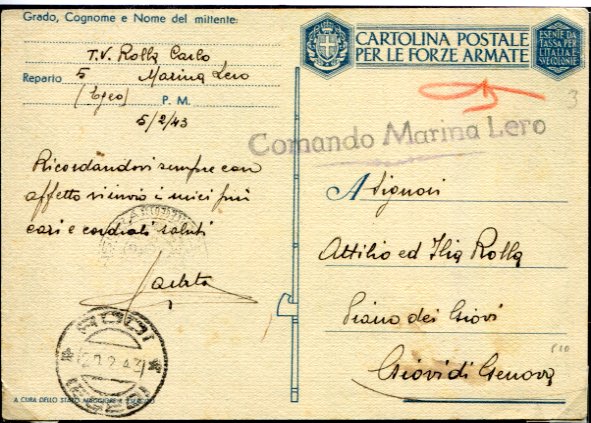 Grado, Cognome e Nome del mittente:
T.V. Rolla Carlo
Reparto 5 Marina Lero
(Egeo) P. M.
5/2/43
Ricordandovi sempre con
affetto vi invio i miei più
cari e cordiali saluti
CARTOLINA POSTALE
PER LE FORZE ARMATE
ESENTE DA
TASSA PER
L'ITALIA E
SVE COLONIE
3
Comando Marina Lero
A Signori
Attilio ed Ilia Rolla
Piano dei Giovi
Giovi di Genova
RODI
(EGEO)
A CURA DELLO STATO MAGGIORE R. ESERCITO